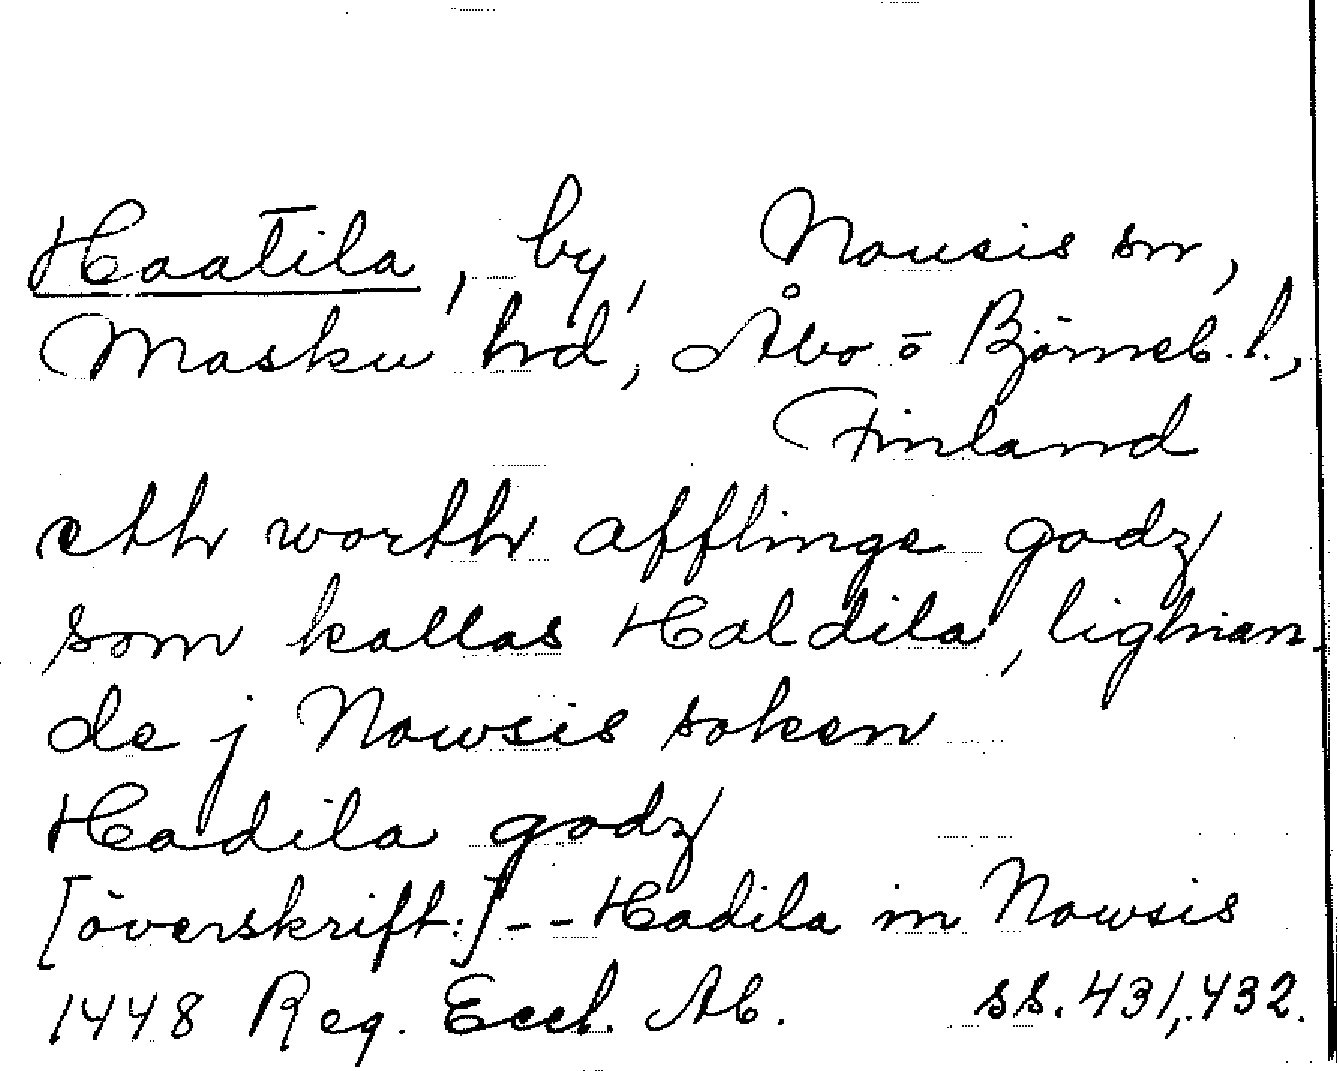 Haatila, by, Nousis sn,
Masku hd, Åbo o Björneb. l.,
Finland
eth worth afflinge godz
som kallas Haldila, lighian-
de j Nowsis soken
Hadila godz
[överskrift:] -- Hadila in Nowsis
1448 Reg. Eccl. Ab. ss. 431, 432.